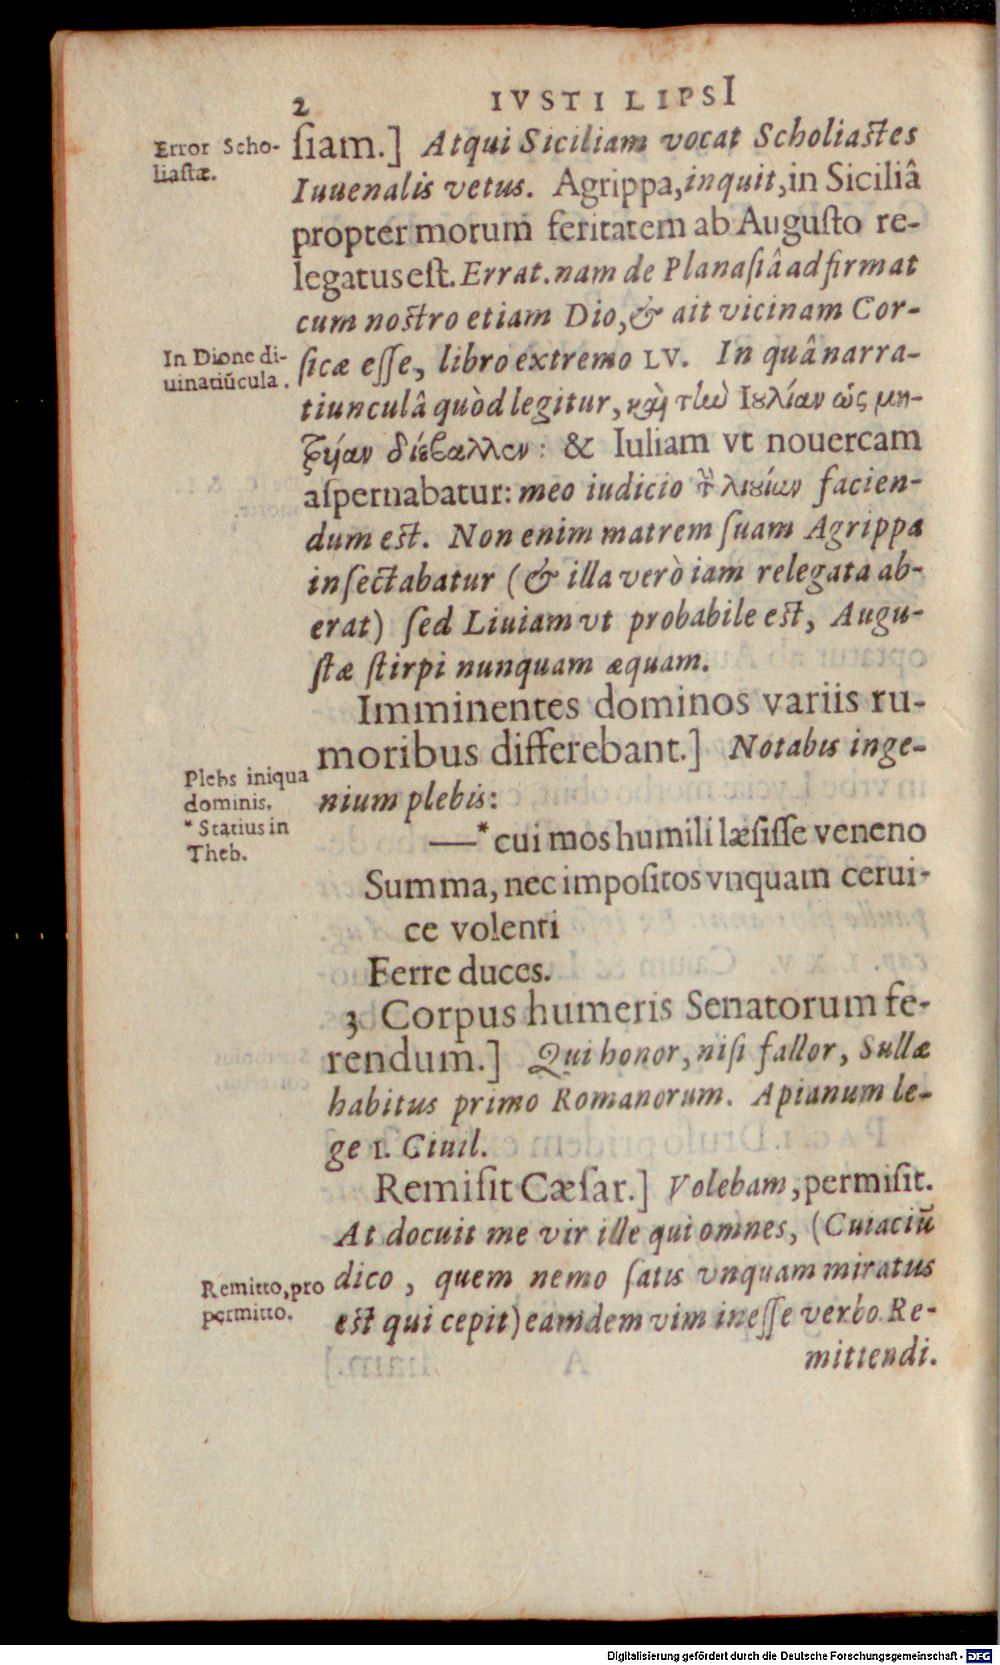 2 IVSTI LIPSI
Error Scho-
liastæ.
siam.] Atqui Siciliam vocat Scholiastes
Iuuenalis vetus. Agrippa, inquit, in Siciliâ
propter morum feritatem ab Augusto re-
legatus est. Errat. nam de Planasiâ adfirmat
cum nostro etiam Dio, & ait vicinam Cor-
In Dione di-
uinatiũcula.
sicæ esse, libro extremo LV. In quâ narra-
tiunculâ quòd legitur, καὶ τὴν Ἰουλίαν ὡς μη-
τρυιὰν διέβαλλεν: & Iuliam vt nouercam
aspernabatur: meo iudicio τὴν λιουίαν facien-
dum est. Non enim matrem suam Agrippa
insectabatur (& illa verò iam relegata ab-
erat) sed Liuiam vt probabile est, Augu-
stæ stirpi nunquam æquam.
Imminentes dominos variis ru-
moribus differebant.] Notabis inge-
Plebs iniqua
dominis.
nium plebis:
* Statius in
Theb.
—* cui mos humili læsisse veneno
Summa, nec impositos vnquam cerui-
ce volenti
Ferre duces.
3 Corpus humeris Senatorum fe-
rendum.] Qui honor, nisi fallor, Sullæ
habitus primo Romanorum. Apianum le-
ge I. Ciuil.
Remisit Cæsar.] Volebam, permisit.
At docuit me vir ille qui omnes, (Cuiaciũ
Remitto, pro
permitto.
dico, quem nemo satis vnquam miratus
est qui cepit) eamdem vim inesse verbo Re-
mittendi.
Digitalisierung gefördert durch die Deutsche Forschungsgemeinschaft - DFG